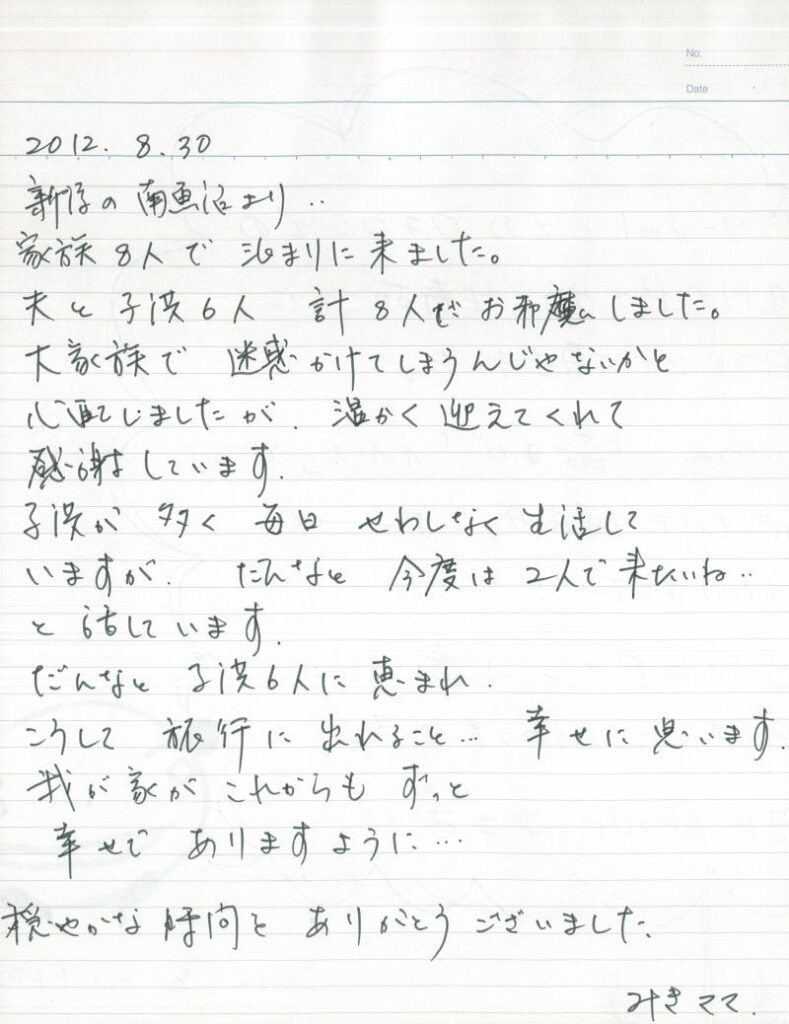 No.
Date
2012. 8. 30
新潟の 南魚沼より‥
家族 8人で 泊まりに 来ました。
夫と 子供6人 計 8人でお邪魔しました。
大家族で 迷惑かけてしまうんじゃないかと
心配でしましたが、温かく 迎えてくれて
感謝しています。
子供が 多く 毎日 せわしなく 生活して
いますが、 だんなと 今度は 2人で 来たいね‥
と 話しています。
だんなと 子供6人に 恵まれ、
こうして 旅行に 出れること… 幸せに 思います。
我が家が これからも ずっと
幸せで ありますように…
穏やかな 時間を ありがとう ございました。
みきママ.